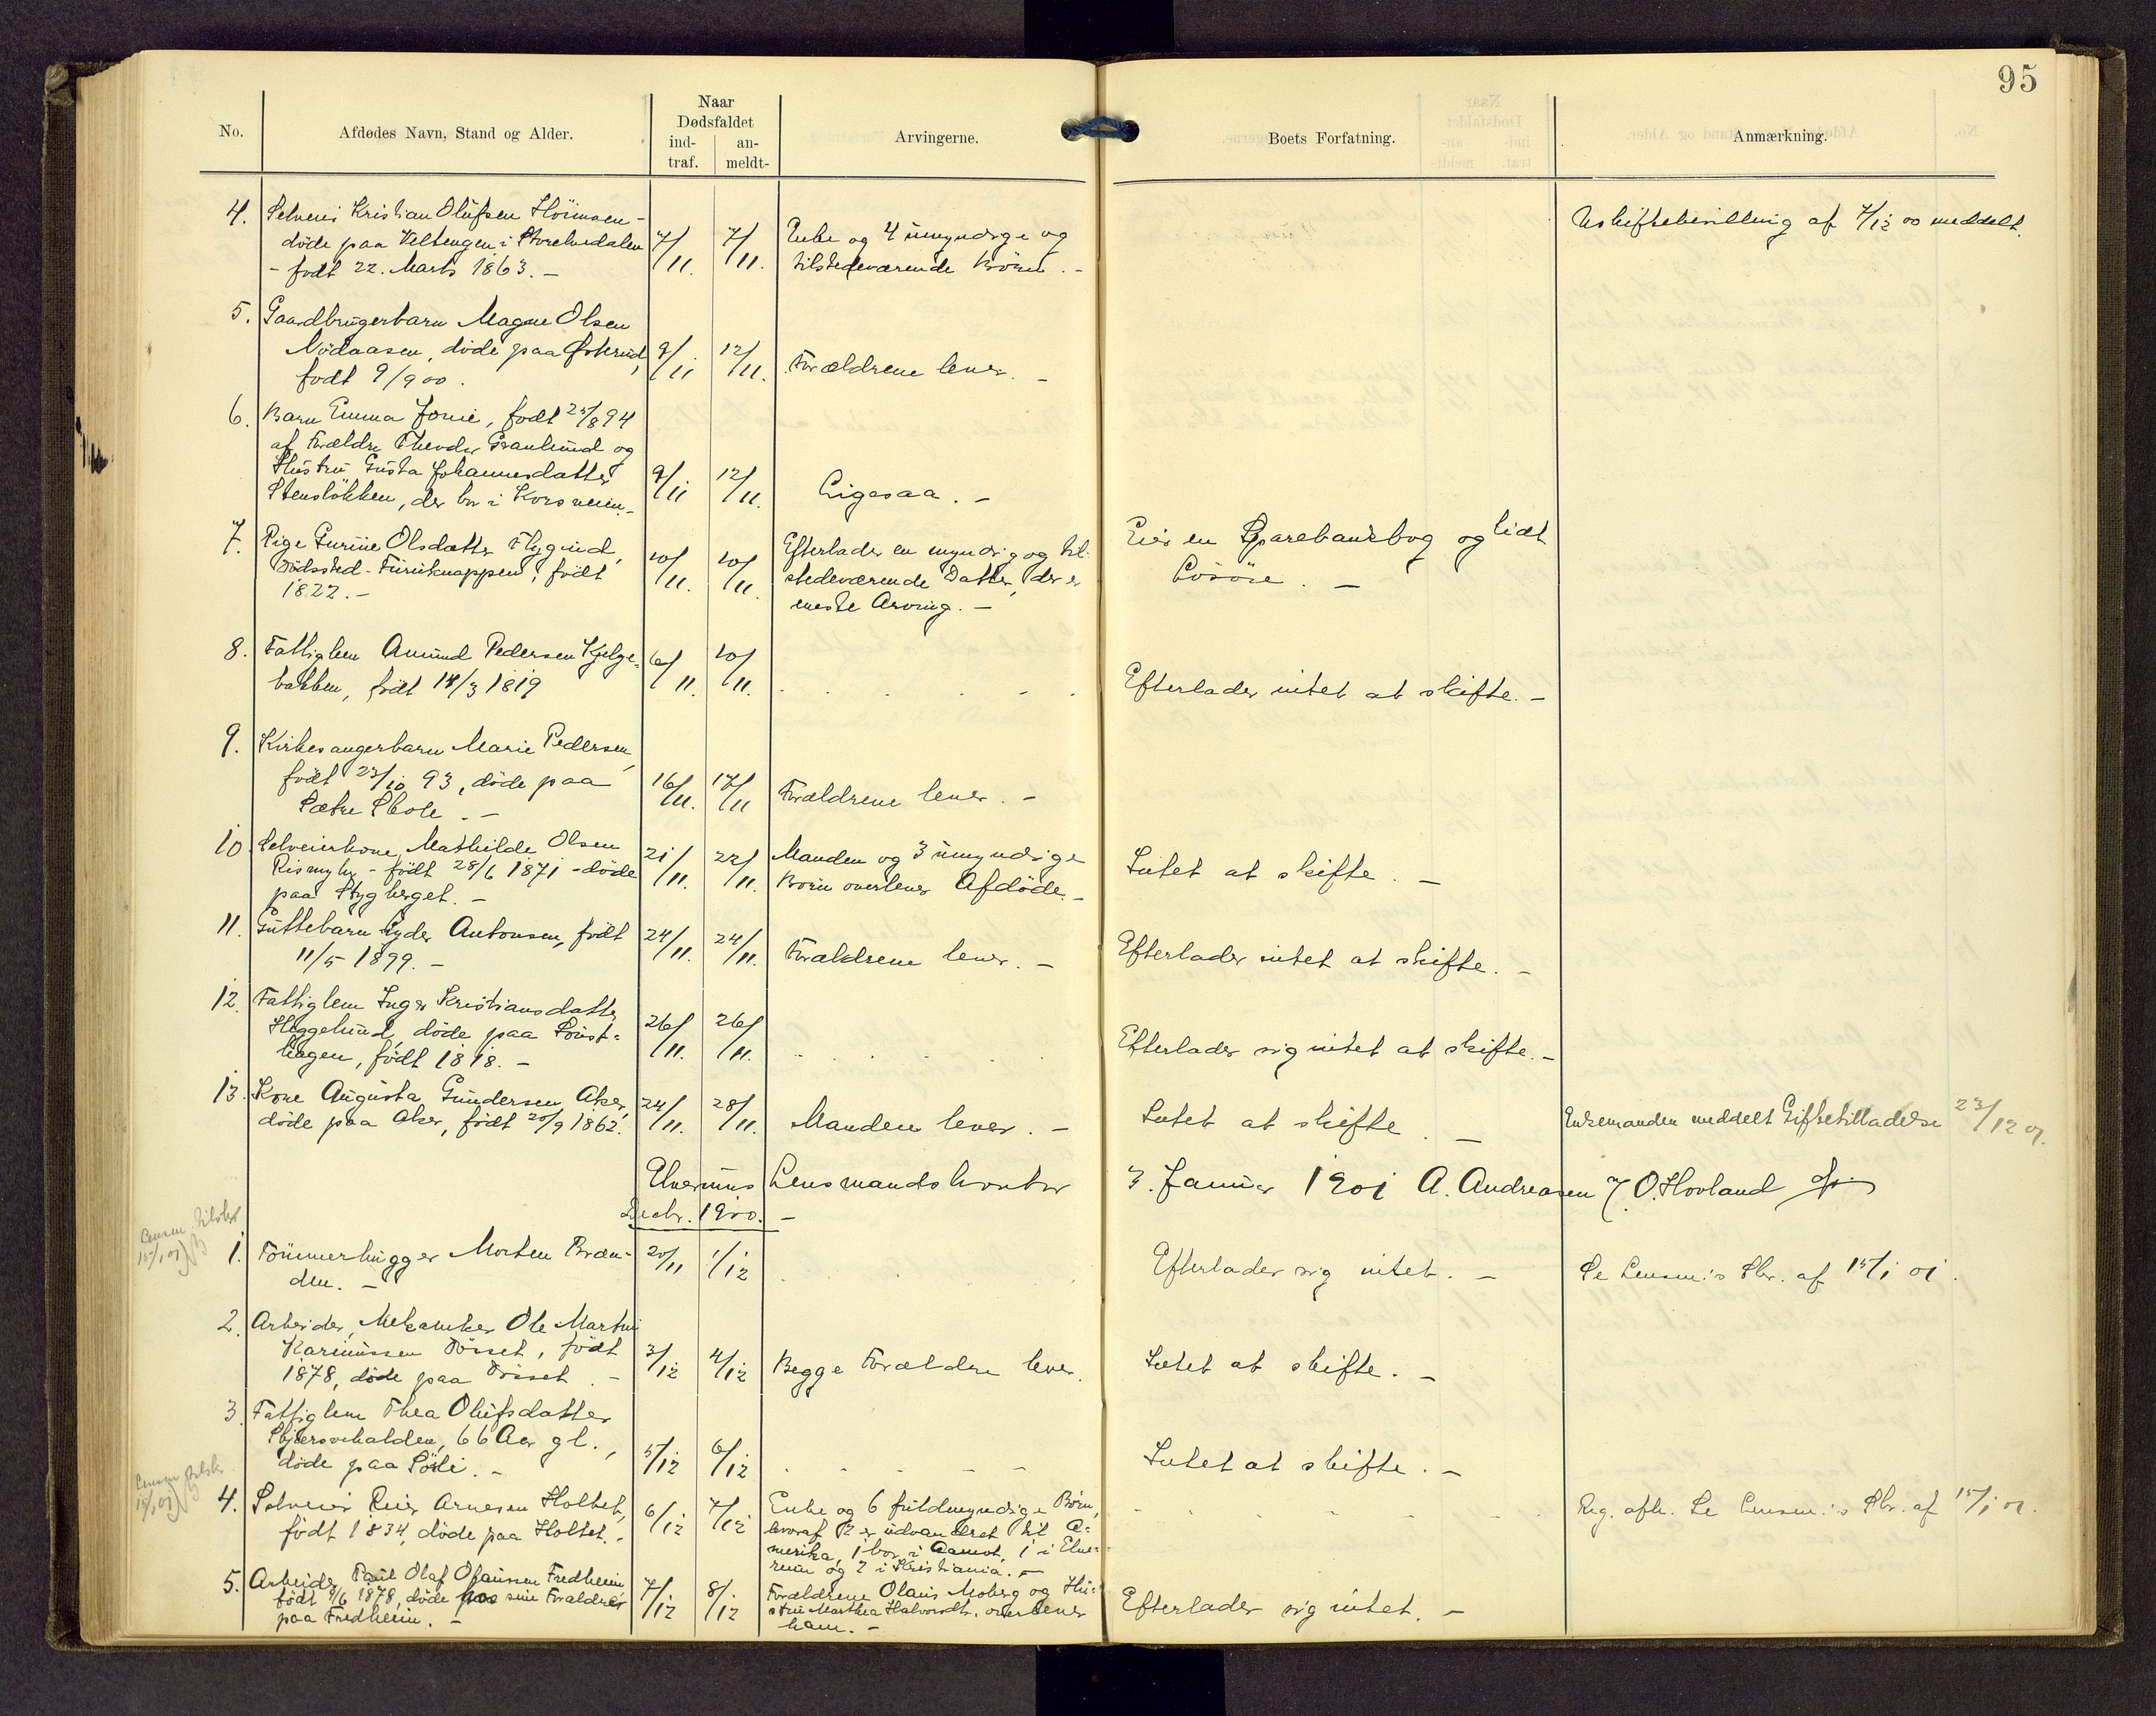 95
No.
Afdødes Navn, Stand og Alder.
Naar
Dødsfaldet
ind-
traf.
an-
meldt-
Arvingerne.
Boets Forfatning.
Anmærkning.
4. Selveier Kristian Olufsen
døde paa Veltengen i
- født 22. Marts 1863. -
7/11. 7/11.
Enke og 4 umyndige og
tilstedeværende Börn. -
Uskiftebevilling af 7/12 00 meddelt.
5. Gaardbrugerbarn Magne Olsen
Nödaasen, döde paa Østerud,
født 9/9 00.
9/11 12/11.
Forældrene lever. -
6. Barn Emma Jonie, født 25/8 94
af Forældre Theodor Granlund og
Hustru Gusta Johannesdatter
Stenslökken, der bor i
9/11 12/11.
Ligesaa. -
7. Pige Gurine Olsdatter Flygind,
Dödssted - Furuknappen, født
1822. -
10/11. 10/11.
Efterlader en myndig og til-
stedeværende Datter, der er
eneste Arving. -
Eier en Sparebankbog og lidt
Lösöre. -
8. Fattiglem Amund Pedersen
bakken, født 14/3 1819
6/11. 10/11.
Efterlader intet at skifte. -
9. Kirkesangerbarn Marie Pedersen,
født 23/10 93, døde paa
Sætre Skole. -
16/11. 17/11
Forældrene lever. -
10. Selveierkone Mathilde Olsen
Rismyhr - født 28/6 1871 - døde
paa Stygberget. -
21/11. 22/11.
Manden og 3 umyndige
Börn overlever Afdöde. -
Intet at skifte. -
11. Guttebarn Eyder Antonsen, født
11/5 1899. -
24/11. 24/11.
Forældrene lever. -
Efterlader intet at skifte. -
12. Fattiglem Inger Kristiansdatter
Heggelund, døde paa
hagen, født 1818. -
26/11. 26/11.
Efterlader sig intet at skifte. -
13. Kone Augusta Gundersen Aker,
døde paa Aker, født 20/9 1862.
24/11. 28/11.
Manden lever. -
Intet at skifte. -
Enkemanden meddelt Giftetilladelse 23/12 01.
Elverums Lensmandskontor 3. Januar 1901 A. Andreasen / O. Hovland
Decbr. 1900. -
Lensm. tilskr.
15/1 01
1. Tömmerhugger Morten Bræn-
den. -
20/11 1/12
Efterlader sig intet. -
Se Lensm:s Skr. af 15/1 01.
2. Arbeider, Mekaniker Ole Martin
Karinussen Dösset, født
1878, døde paa Dösset. -
3/12 4/12
Begge Forældre lever.
Intet at skifte. -
3. Fattiglem Thea Olufsdatter
66 Aar gl.,
døde paa Sörli. -
5/12 6/12
Intet at skifte. -
Lensm tilskr.
15/1 01
4. Selveier Reier Arnesen Holtet,
født 1834, døde paa Holtet. -
6/12 7/12
Enke og 6 fuldmyndige Börn,
hvoraf 2 er udvandret til A-
merika, 1 bor i Aamot, 1 i Elve-
rum og 2 i Kristiania. -
Reg. afh. Se Lensm:s Skr. af 15/1 01.
5. Arbeider Paul Olaf Olausen Fredheim
født 9/6 1878, døde hos sine Forældre
paa Fredheim. -
7/12 8/12
Forældrene Olaus Moberg og Hu-
stru Marthea Halvorsdtr. overlever
ham. -
Efterlader sig intet. -